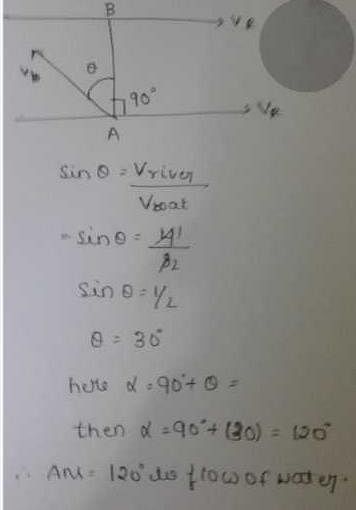 B
V_R
V_b
θ
90°
V_R
A
sin θ = V river / V Boat
= sin θ = 4 1 / 8 2
sin θ = 1/2
θ = 30°
here α = 90° + θ =
then α = 90° + (30) = 120°
∴ Ans = 120° to flow of water.